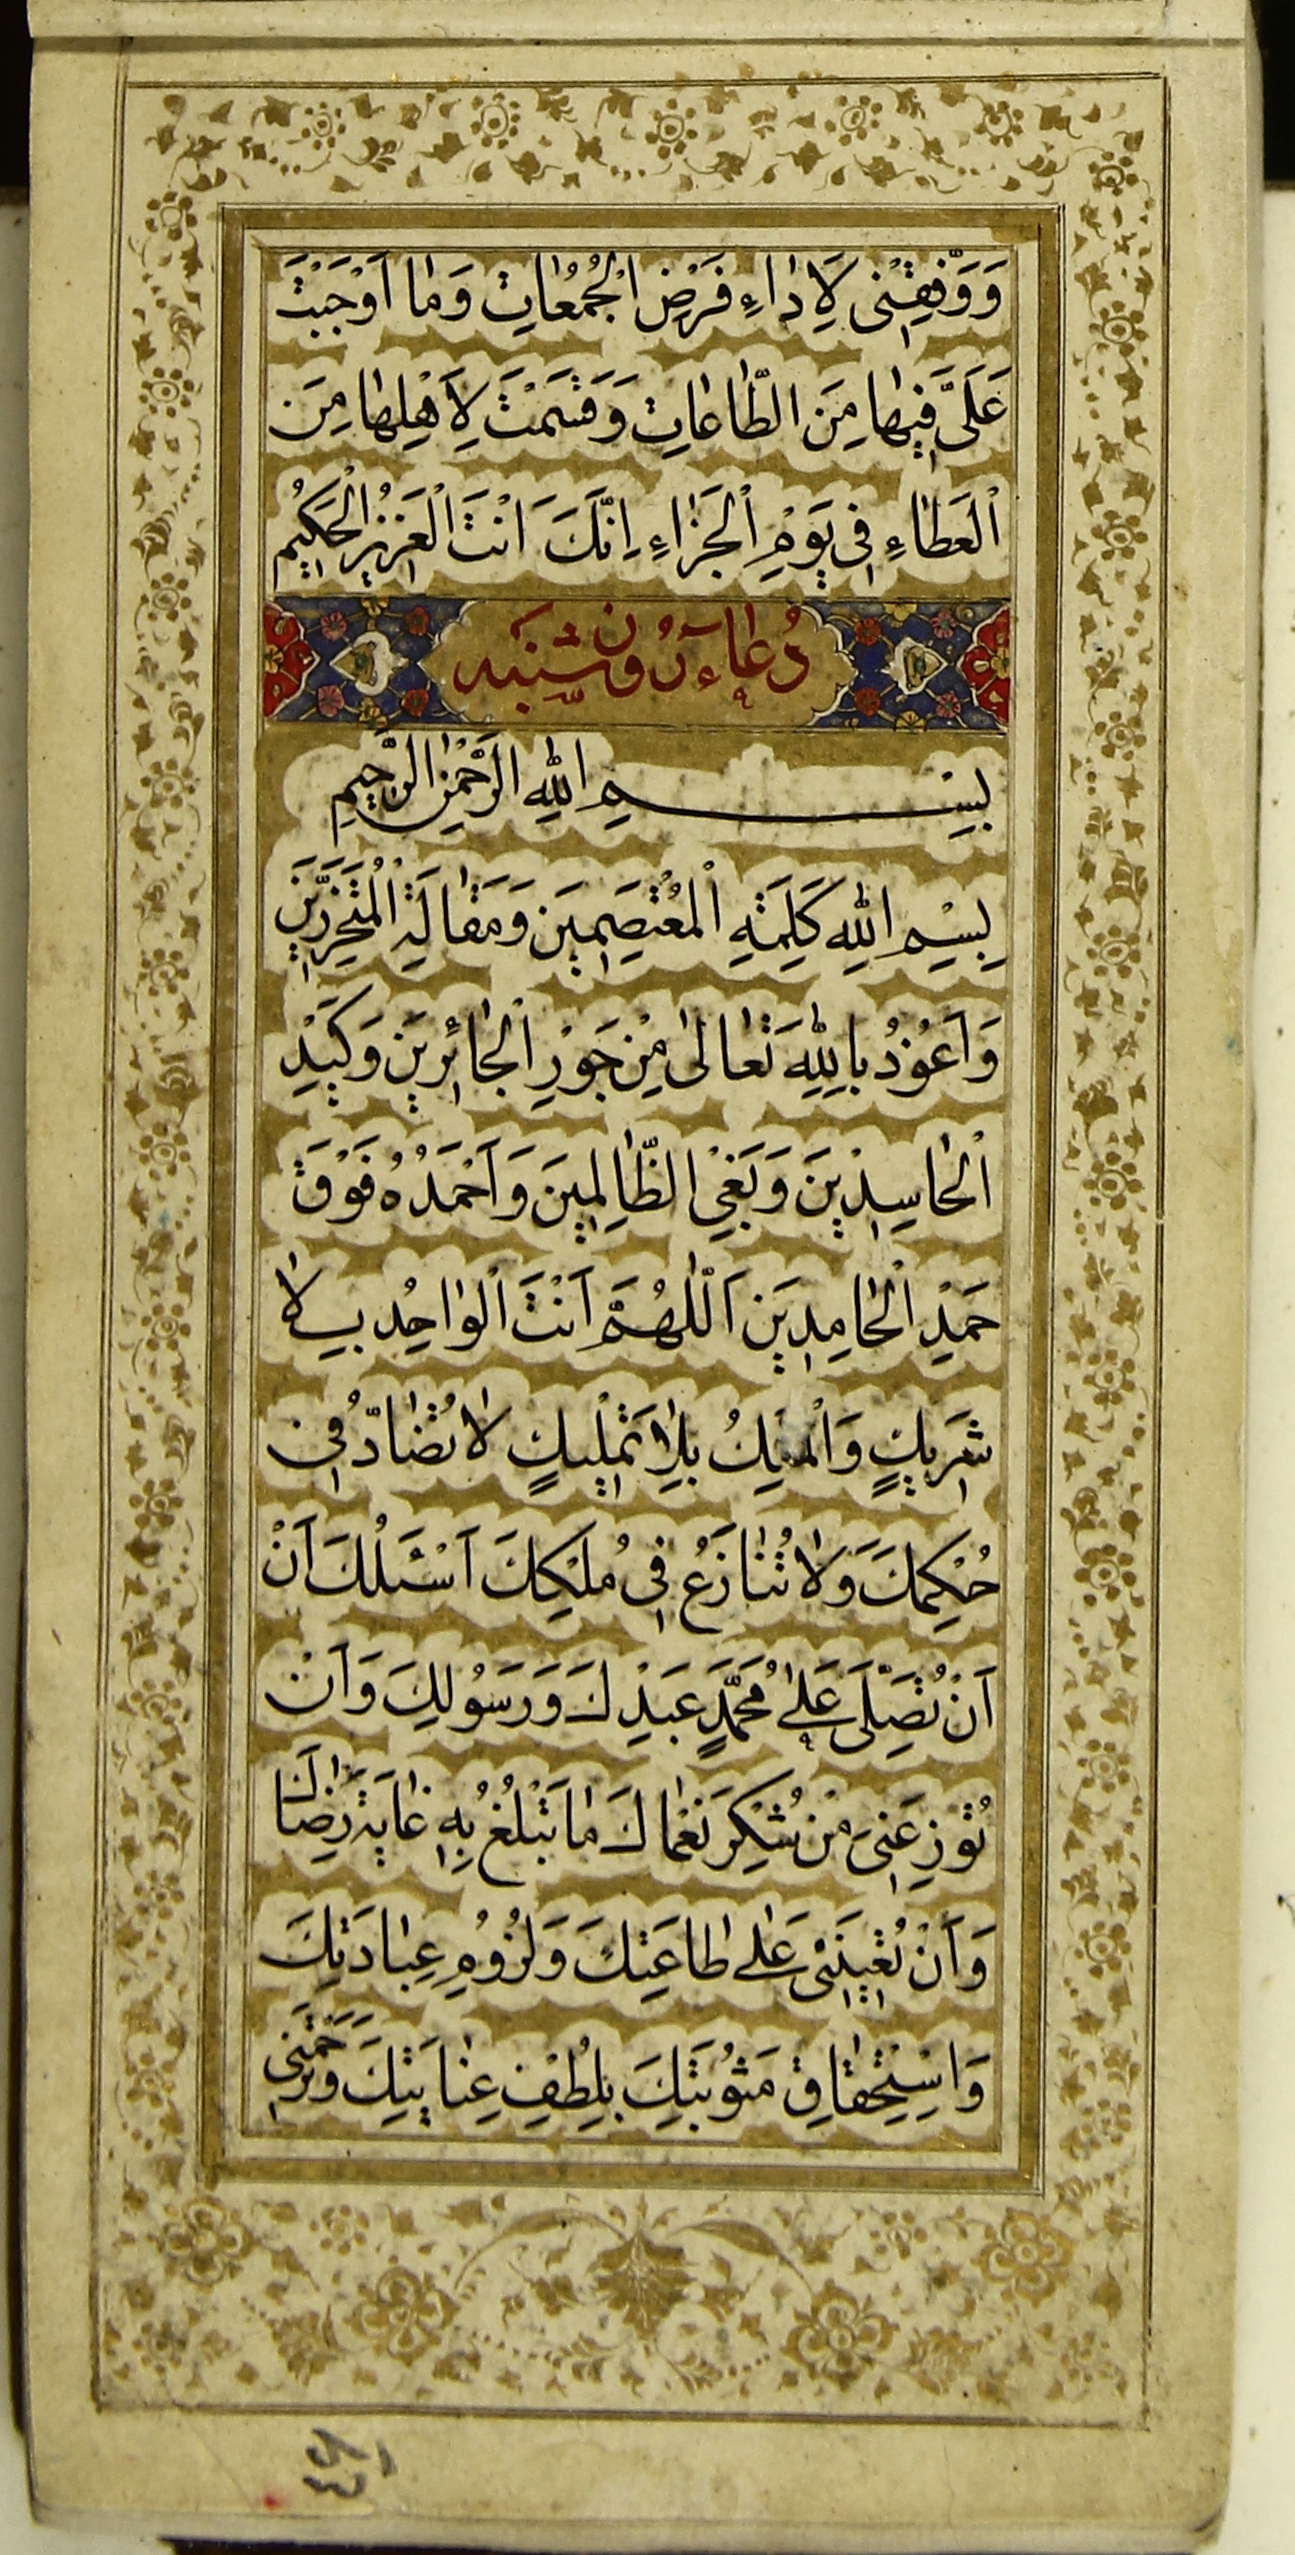 وَوَفِّقْنِی لِاَدٰاءِ فَرْضِ الْجُمُعٰاتِ وَمٰا اَوْجَبْتَ
عَلَیَّ فِیهٰا مِنَ الطّٰاعٰاتِ وَقَسَمْتَ لِاَهْلِهٰا مِنَ
الْعَطٰاءِ فِی یَوْمِ الْجَزٰاءِ اِنَّكَ اَنْتَ الْعَزِیزُ الْحَكِیْمُ
دُعٰاءِ
بِسْمِ اللّٰهِ الرَّحْمٰنِ الرَّحِیْمِ
بِسْمِ اللّٰهِ كَلِمَةِ الْمُعْتَصِمِینَ وَمَقٰالَةِ الْمُتَحَرِّزِینَ
وَاَعُوْذُ بِاللّٰهِ تَعٰالٰی مِنْ جَوْرِ الْجٰائِرِینَ وَكَیْدِ
الْحٰاسِدِیْنَ وَبَغْیِ الظّٰالِمِینَ وَاَحْمَدُهُ فَوْقَ
حَمْدِ الْحٰامِدِینَ اَللّٰهُمَّ اَنْتَ الْوٰاحِدُ بِلاٰ
شَرِیكٍ وَالْمَلِكُ بِلاٰ تَمْلِیكٍ لاٰ تُضٰادُّ فِی
حُكْمِكَ وَلاٰ تُنٰازَعُ فِی مُلْكِكَ اَسْئَلُكَ اَنْ
اَنْ تُصَلِّیَ عَلٰی مُحَمَّدٍ عَبْدِكَ وَرَسُوْلِكَ وَاَنْ
تُوْزِعَنِیَ مِنْ شُكْرِ نَعْمٰاكَ مٰا تَبْلُغُ بِهِ غٰایَةَ رِضٰاكَ
وَاَنْ تُعِینَنِیْ عَلٰی طٰاعَتِكَ وَلُزُوْمِ عِبٰادَتِكَ
وَاسْتِحْقٰاقِ مَثُوْبَتِكَ بِلُطْفِ عِنٰایَتِكَ وَتَرْحَمَنِی